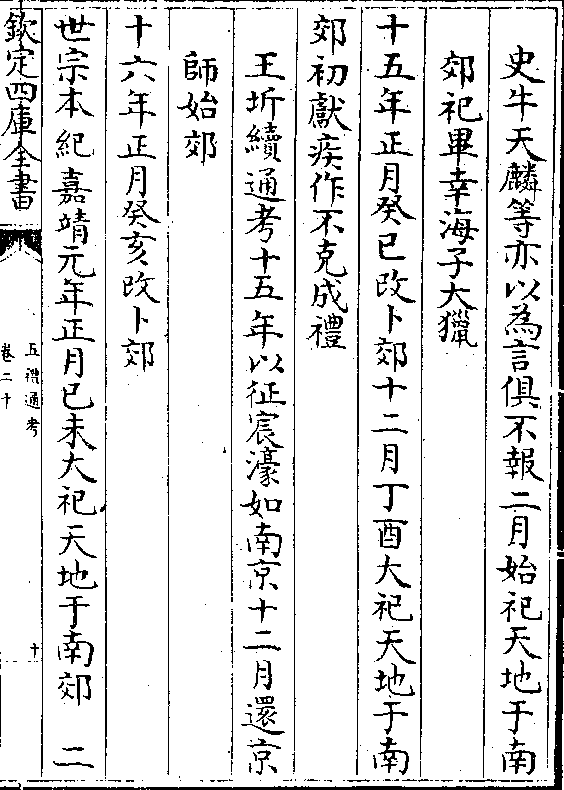 史牛天麟等亦以為言俱不報二月始祀天地于南
郊祀畢幸海子大獵
十五年正月癸巳改卜郊十二月丁酉大祀天地于南
郊初獻疾作不克成禮
王圻續通考十五年以征宸濠如南京十二月還京
師始郊
十六年正月癸亥改卜郊
世宗本紀嘉靖元年正月己未大祀天地于南郊 二
欽定四庫全書
五禮通考
卷二十
十